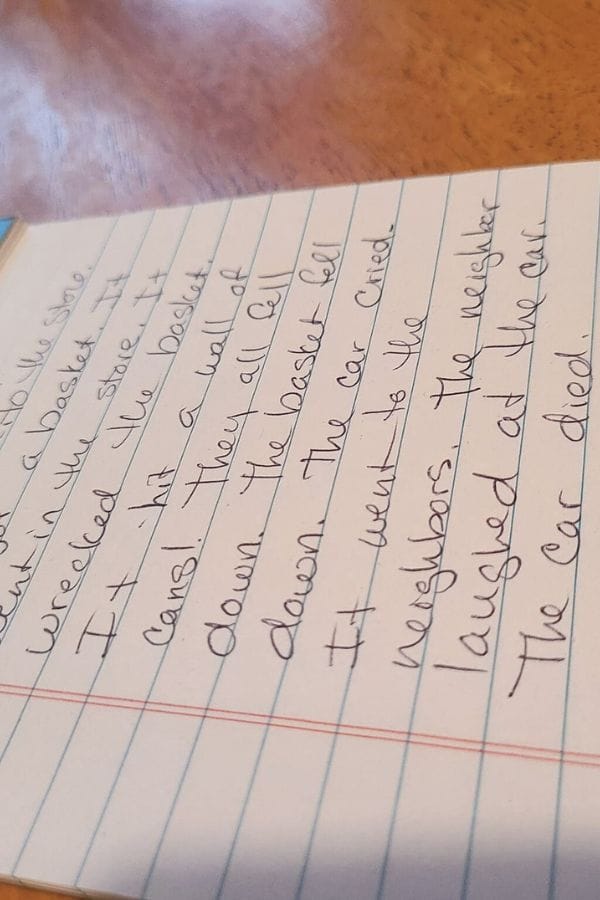 to the store.
a basket. It
in the store. It
wrecked the basket.
It hit a wall of
cans! They all fell
down. The basket fell
down. The car cried.
It went to the
neighbors. The neighbor
laughed at the car.
The car died.